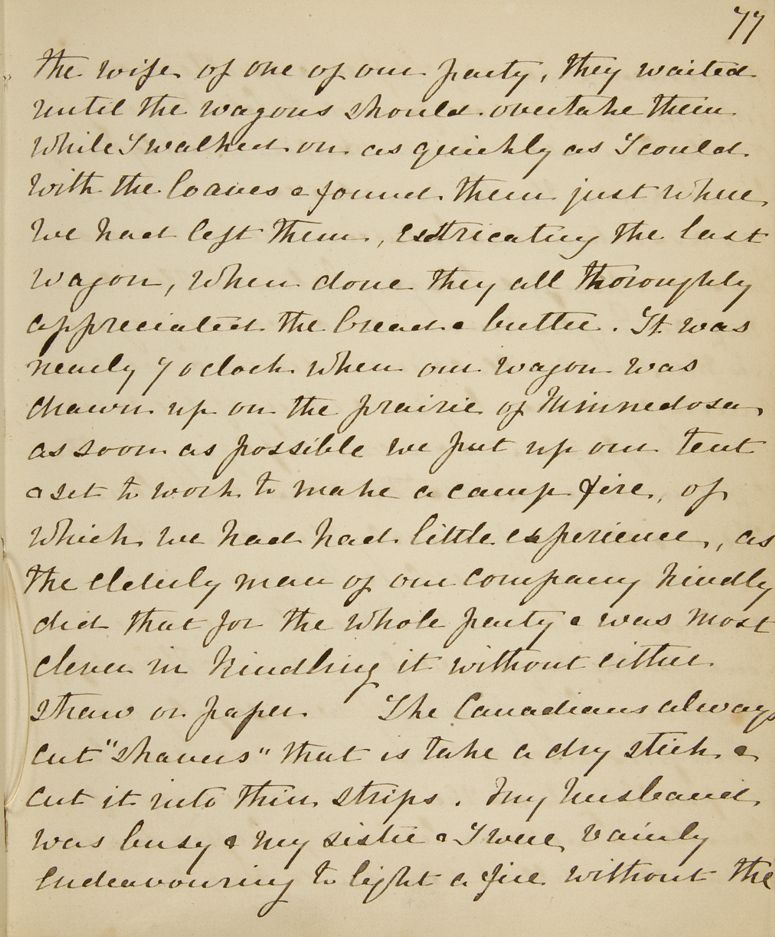 77
the wife of one of our party, they waited
until the wagons should overtake them
while I walked on as quickly as I could
with the loaves & found them just where
we had left them, extricating the last
wagon, when done they all thoroughly
appreciated the bread & butter. It was
nearly 7 oclock when our wagon was
drawn up on the prairie of Minnedosa,
as soon as possible we put up our tent
& set to work to make a camp fire, of
which we had had little experience, as
the elderly man of our company kindly
did that for the whole party & was most
clever in kindling it without either
straw or paper. The Canadians always
cut "shavers" that is take a dry stick &
cut it into thin strips. My husband
was busy & my sister & I were vainly
endeavouring to light a fire without the